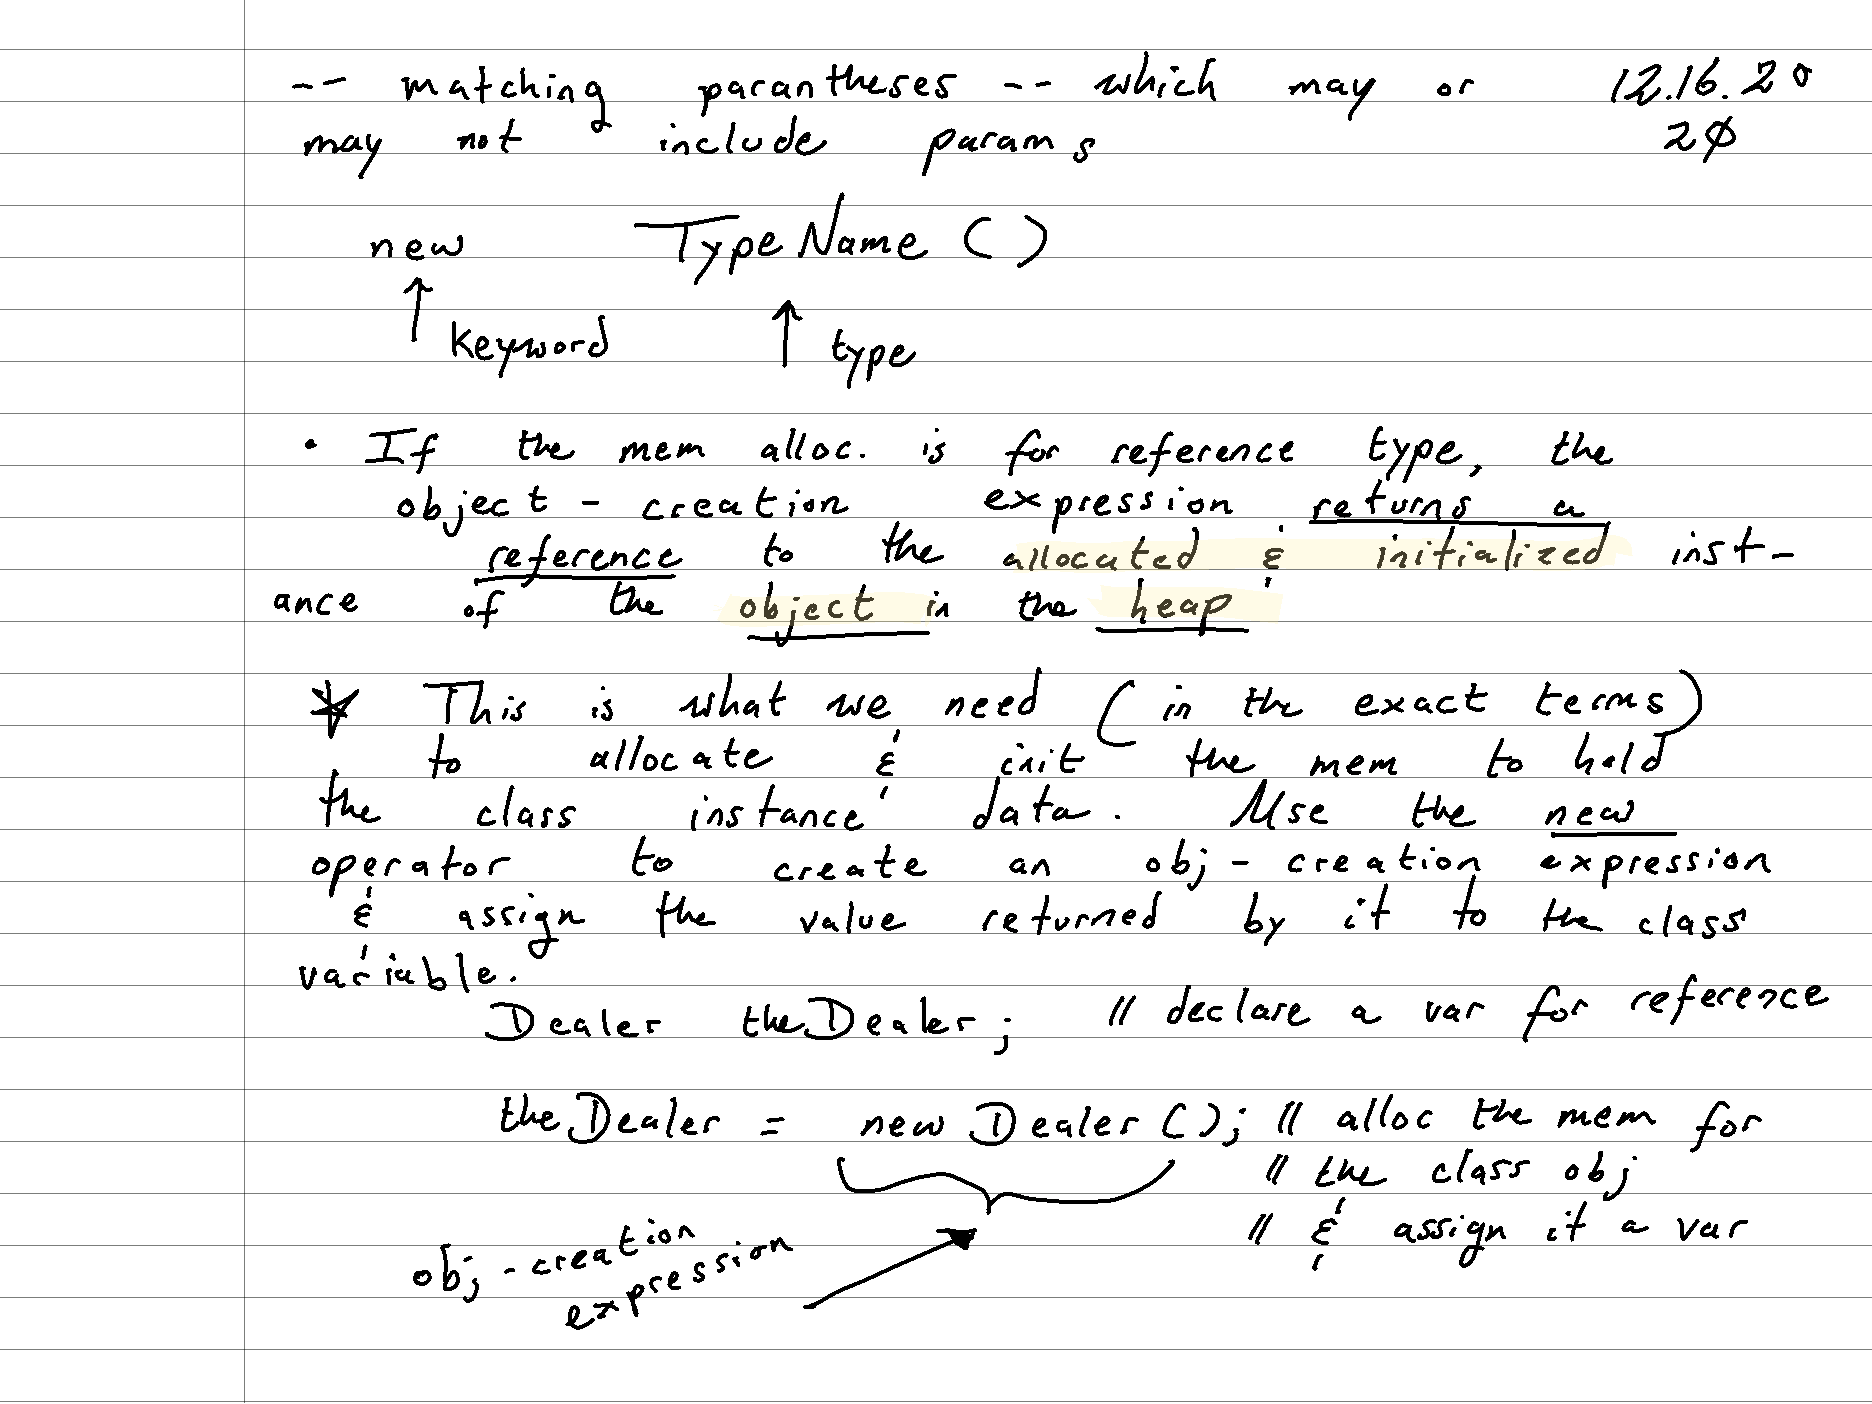 -- matching parantheses -- which may or 12.16.20
may not include params 20
new TypeName ()
↑ keyword ↑ type
• If the mem alloc. is for reference type, the
object - creation expression returns a
reference to the allocated & initialized inst-
ance of the object in the heap
* This is what we need (in the exact terms)
to allocate & init the mem to hold
the class instance data. Use the new
operator to create an obj - creation expression
& assign the value returned by it to the class
variable.
Dealer theDealer; // declare a var for reference
theDealer = new Dealer (); // alloc the mem for
// the class obj
// & assign it a var
obj - creation
expression